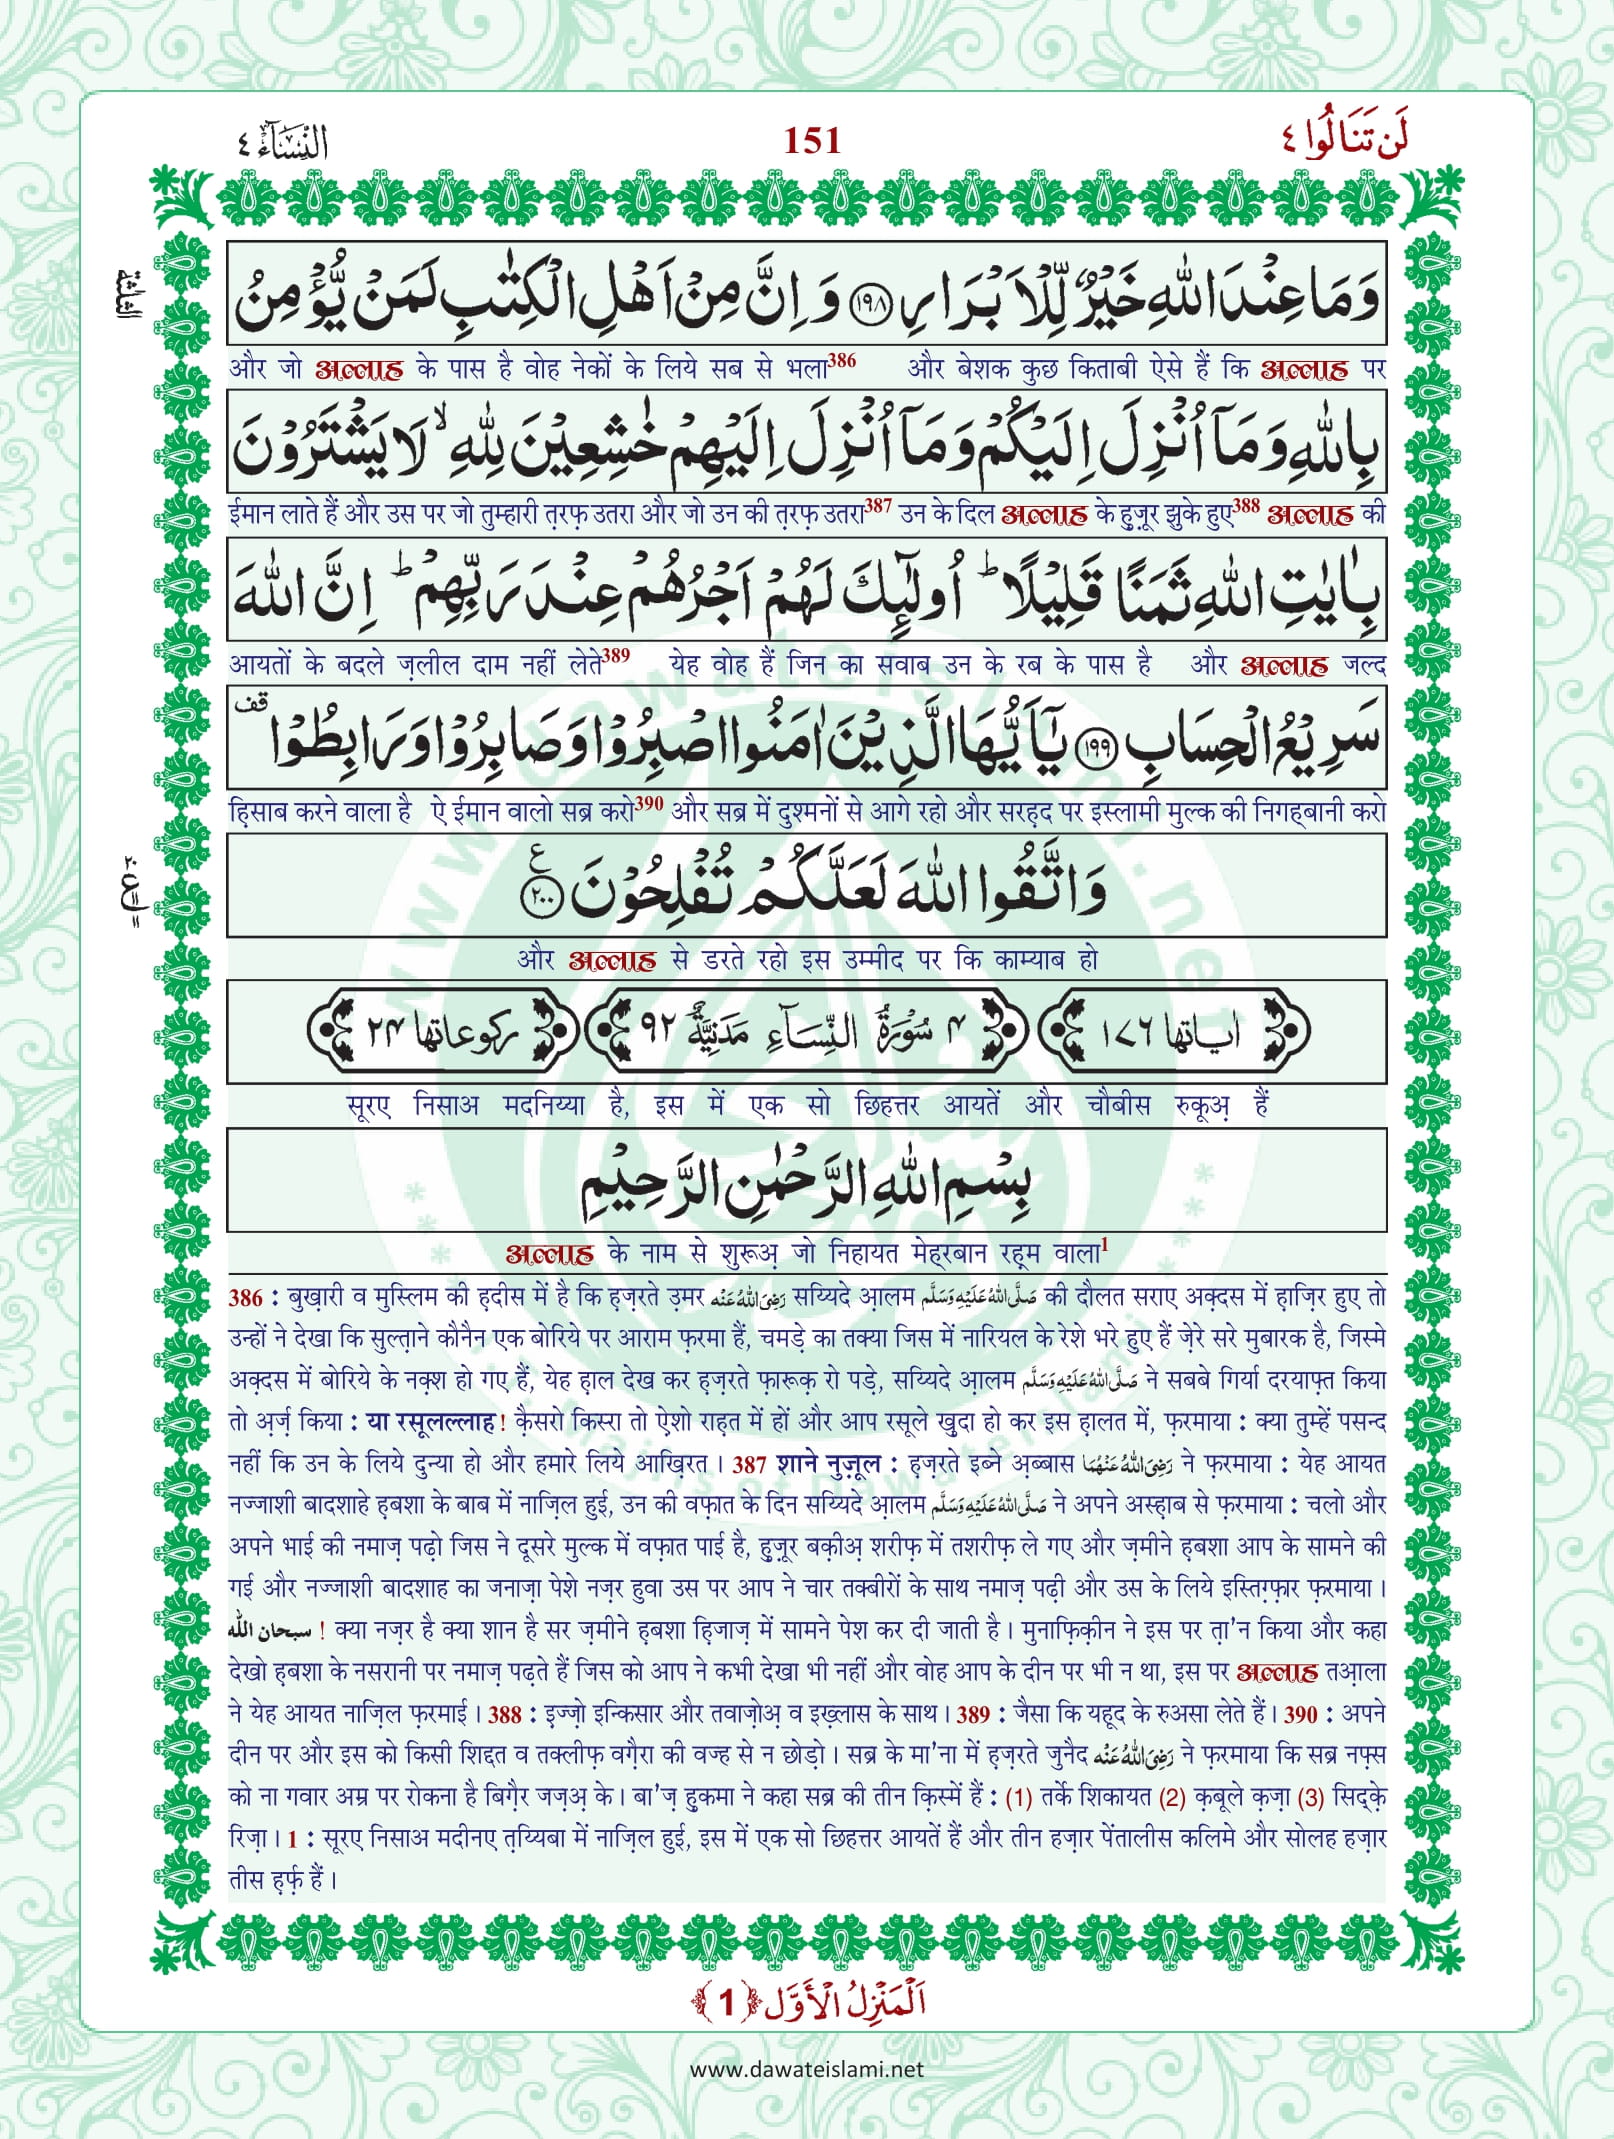 لَنْ تَنَالُوا ٤ 151 النِّسَآء ٤
وَمَا عِنْدَ اللّٰهِ خَيْرٌ لِّلْاَبْرَارِ ﴿١٩٨﴾ وَاِنَّ مِنْ اَهْلِ الْكِتٰبِ لَمَنْ يُّؤْمِنُ
और जो अल्लाह के पास है वोह नेकों के लिये सब से भला386 और बेशक कुछ किताबी ऐसे हैं कि अल्लाह पर
بِاللّٰهِ وَمَآ اُنْزِلَ اِلَيْكُمْ وَمَآ اُنْزِلَ اِلَيْهِمْ خٰشِعِيْنَ لِلّٰهِ ۙ لَا يَشْتَرُوْنَ
ईमान लाते हैं और उस पर जो तुम्हारी त़रफ़ उतरा और जो उन की त़रफ़ उतरा387 उन के दिल अल्लाह के हुज़ूर झुके हुए388 अल्लाह की
بِاٰيٰتِ اللّٰهِ ثَمَنًا قَلِيْلًا ؕ اُولٰٓئِكَ لَهُمْ اَجْرُهُمْ عِنْدَ رَبِّهِمْ ؕ اِنَّ اللّٰهَ
आयतों के बदले ज़लील दाम नहीं लेते389 येह वोह हैं जिन का सवाब उन के रब के पास है और अल्लाह जल्द
سَرِيْعُ الْحِسَابِ ﴿١٩٩﴾ يٰٓاَيُّهَا الَّذِيْنَ اٰمَنُوا اصْبِرُوْا وَصَابِرُوْا وَرَابِطُوْا قف
हि़साब करने वाला है ऐ ईमान वालो सब्र करो390 और सब्र में दुश्मनों से आगे रहो और सरह़द पर इस्लामी मुल्क की निगह्बानी करो
وَاتَّقُوا اللّٰهَ لَعَلَّكُمْ تُفْلِحُوْنَ ﴿٢٠٠﴾ ع
और अल्लाह से डरते रहो इस उम्मीद पर कि काम्याब हो
اٰياتها ١٧٦ ٤ سُوْرَةُ النِّسَآءِ مَدَنِيَّةٌ ٩٢ ركوعاتها ٢٤
सूरए निसाअ मदनिय्या है, इस में एक सो छिहत्तर आयतें और चौबीस रुकूअ़ हैं
بِسْمِ اللّٰهِ الرَّحْمٰنِ الرَّحِيْمِ
अल्लाह के नाम से शुरूअ़ जो निहायत मेह्रबान रह़्म वाला1
386 : बुख़ारी व मुस्लिम की ह़दीस में है कि ह़ज़रते उ़मर رَضِىَ اللّٰهُ عَنْه सय्यिदे आ़लम صَلَّى اللّٰهُ عَلَيْهِ وَسَلَّم की दौलत सराए अक़्दस में ह़ाज़िर हुए तो
उन्हों ने देखा कि सुल्त़ाने कौनैन एक बोरिये पर आराम फ़रमा हैं, चमड़े का तक्या जिस में नारियल के रेशे भरे हुए हैं ज़ेरे सरे मुबारक है, जिस्मे
अक़्दस में बोरिये के नक़्श हो गए हैं, येह ह़ाल देख कर ह़ज़रते फ़ारूक़ रो पड़े, सय्यिदे आ़लम صَلَّى اللّٰهُ عَلَيْهِ وَسَلَّم ने सबबे गिर्या दरयाफ़्त किया
तो अ़र्ज़ किया : या रसूलल्लाह! क़ैसरो किस्रा तो ऐशो राह़त में हों और आप रसूले ख़ुदा हो कर इस ह़ालत में, फ़रमाया : क्या तुम्हें पसन्द
नहीं कि उन के लिये दुन्या हो और हमारे लिये आख़िरत। 387 शाने नुज़ूल : ह़ज़रते इब्ने अ़ब्बास رَضِىَ اللّٰهُ عَنْهُمَا ने फ़रमाया : येह आयत
नज्जाशी बादशाहे ह़बशा के बाब में नाज़िल हुई, उन की वफ़ात के दिन सय्यिदे आ़लम صَلَّى اللّٰهُ عَلَيْهِ وَسَلَّم ने अपने अस्ह़ाब से फ़रमाया : चलो और
अपने भाई की नमाज़ पढ़ो जिस ने दूसरे मुल्क में वफ़ात पाई है, हुज़ूर बक़ीअ़ शरीफ़ में तशरीफ़ ले गए और ज़मीने ह़बशा आप के सामने की
गई और नज्जाशी बादशाह का जनाज़ा पेशे नज़र हुवा उस पर आप ने चार तक्बीरों के साथ नमाज़ पढ़ी और उस के लिये इस्तिग़्फ़ार फ़रमाया।
سبحان الله ! क्या नज़र है क्या शान है सर ज़मीने ह़बशा ह़िजाज़ में सामने पेश कर दी जाती है। मुनाफ़िक़ीन ने इस पर त़ा'न किया और कहा
देखो ह़बशा के नसरानी पर नमाज़ पढ़ते हैं जिस को आप ने कभी देखा भी नहीं और वोह आप के दीन पर भी न था, इस पर अल्लाह तआ़ला
ने येह आयत नाज़िल फ़रमाई। 388 : इ़ज्ज़ो इन्किसार और तवाज़ोअ़ व इख़्लास के साथ। 389 : जैसा कि यहूद के रुअसा लेते हैं। 390 : अपने
दीन पर और इस को किसी शिद्दत व तक्लीफ़ वग़ैरा की वज्ह से न छोड़ो। सब्र के मा'ना में ह़ज़रते जुनैद رَضِىَ اللّٰهُ عَنْه ने फ़रमाया कि सब्र नफ़्स
को ना गवार अम्र पर रोकना है बिग़ैर जज़अ़ के। बा'ज़ हु़कमा ने कहा सब्र की तीन क़िस्में हैं : (1) तर्के शिकायत (2) क़बूले क़ज़ा (3) सिद्क़े
रिज़ा। 1 : सूरए निसाअ मदीनए त़य्यिबा में नाज़िल हुई, इस में एक सो छिहत्तर आयतें हैं और तीन हज़ार पेंतालीस कलिमे और सोलह हज़ार
तीस ह़र्फ़ हैं।
اَلْمَنْزِلُ الْاَوَّل ﴿1﴾
www.dawateislami.net